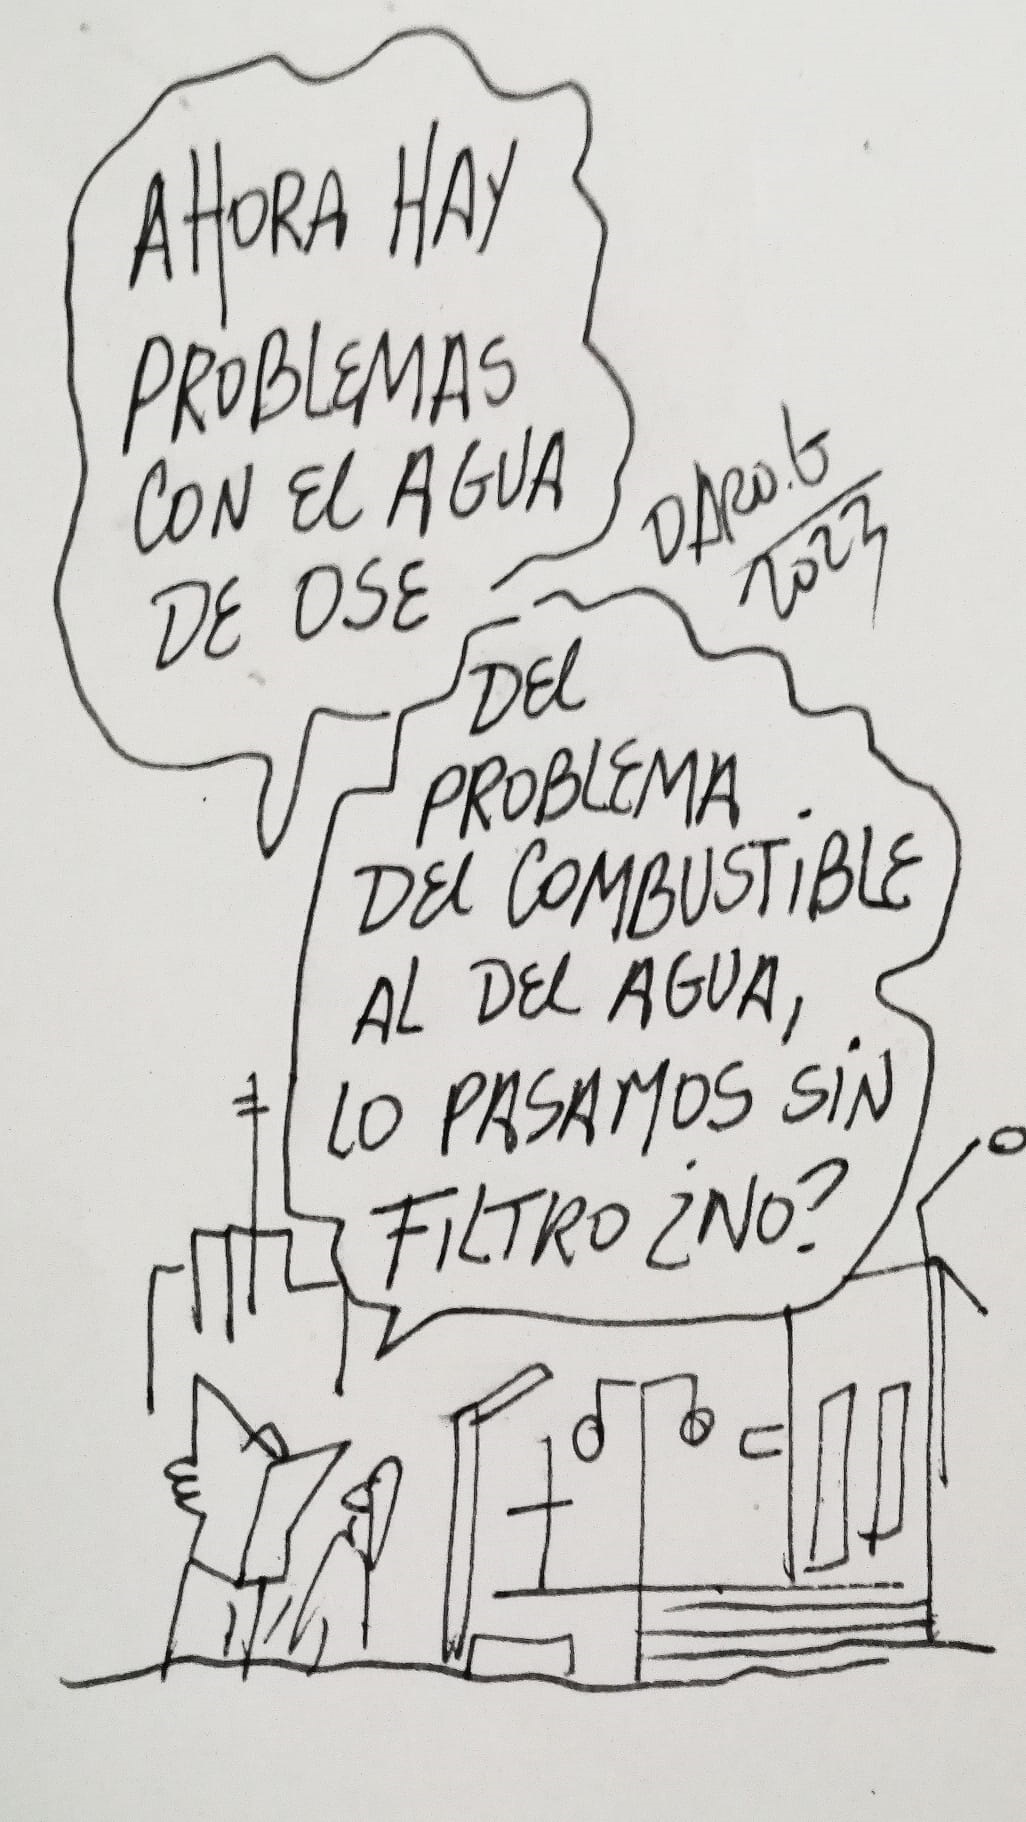 AHORA HAY
PROBLEMAS
CON EL AGUA
DE OSE
DARO.G
2023
DEL
PROBLEMA
DEL COMBUSTIBLE
AL DEL AGUA,
LO PASAMOS SIN
FILTRO ¿NO?